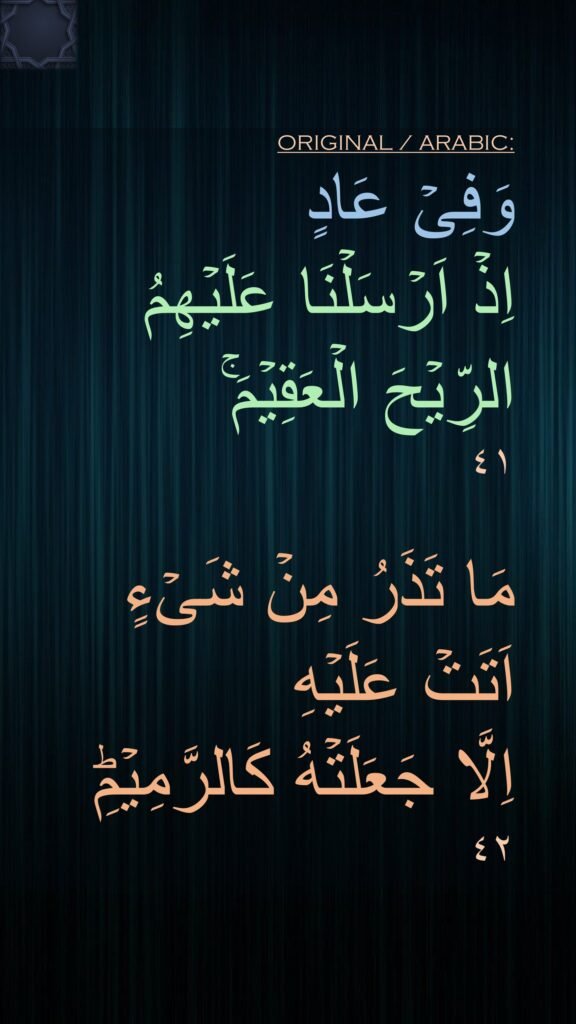 ORIGINAL / ARABIC:
وَفِىۡ عَادٍ
اِذۡ اَرۡسَلۡنَا عَلَيۡهِمُ
الرِّيۡحَ الۡعَقِيۡمَ‌ۚ
٤١
مَا تَذَرُ مِنۡ شَىۡءٍ
اَتَتۡ عَلَيۡهِ
اِلَّا جَعَلَتۡهُ كَالرَّمِيۡمِؕ
٤٢